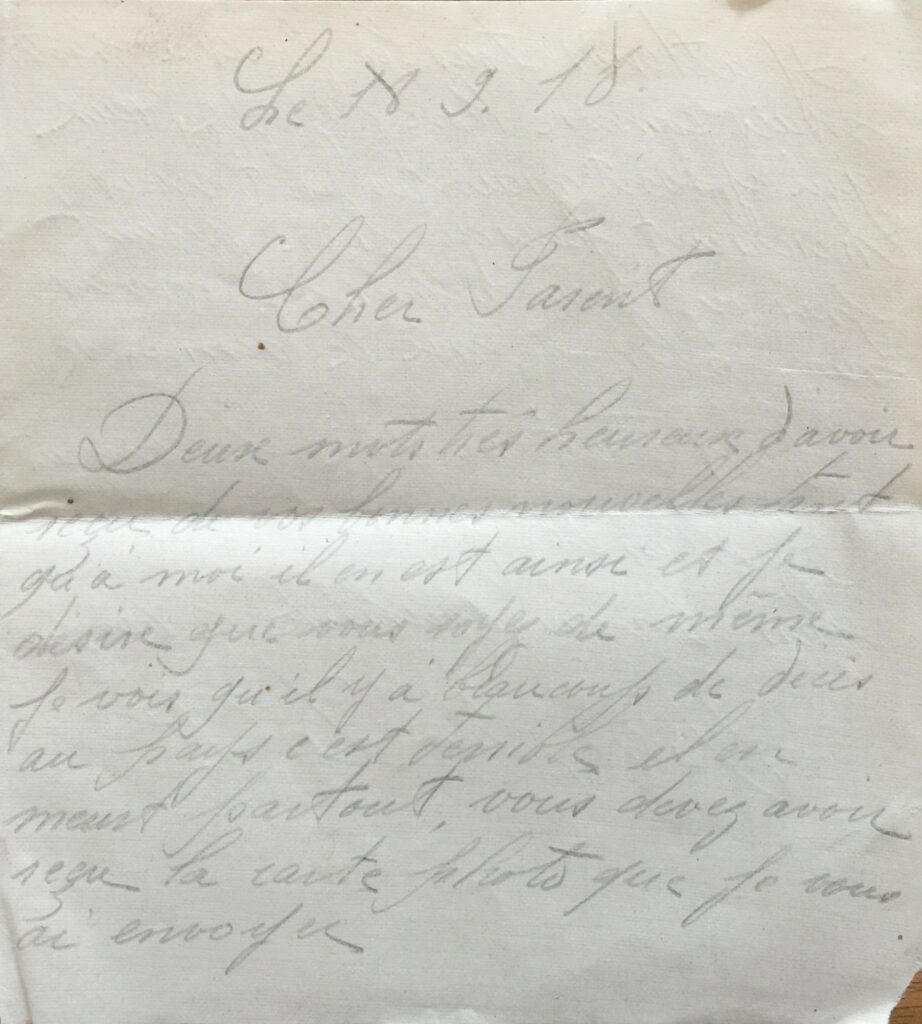 Le 18. 9. 18.
Cher Parent
Deux mots très heureux d'avoir
reçu de vos bonnes nouvelles tant
qu'à moi il en est ainsi et je
désire que vous soyez de même
Je vois qu'il y à beaucoup de décès
au pays c'est terrible il en
meurt partout, vous devez avoir
reçu la carte photo que je vous
ai envoyer